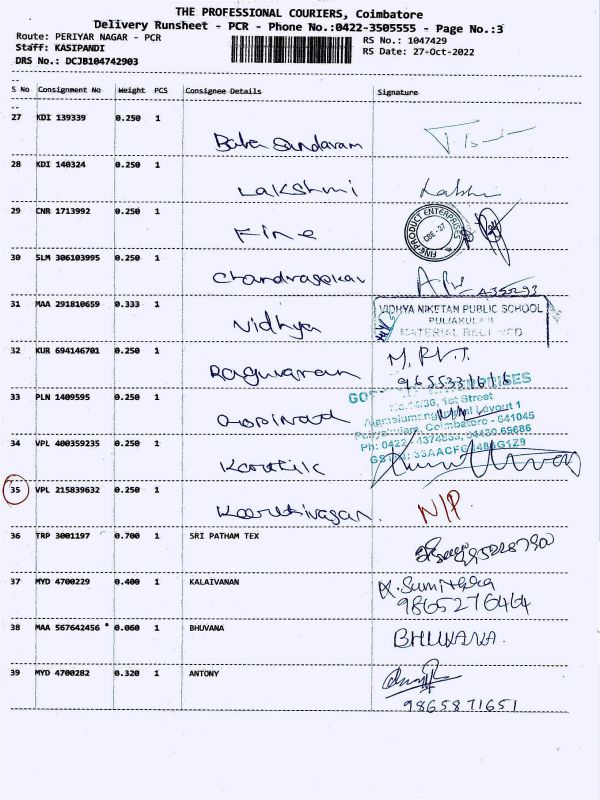 THE PROFESSIONAL COURIERS, Coimbatore
Delivery Runsheet - PCR - Phone No.:0422-3505555 - Page No.:3
Route: PERIYAR NAGAR - PCR
RS No.: 1047429
Staff: KASIPANDI
RS Date: 27-Oct-2022
DRS No.: DCJB104742903
S No Consignment No Weight PCS Consignee Details Signature
27 KDI 139339 0.250 1
28 KDI 140324 0.250 1
Lakshmi
29 CNR 1713992 0.250 1
Fine
FINE PRODUCT ENTERPRISES
CBE-37
30 SLM 306103995 0.250 1
Chandrasekar
31 MAA 291810659 0.333 1
Vidhya
VIDHYA NIKETAN PUBLIC SCHOOL
MATERIAL RECEIVED
32 KUR 694146701 0.250 1
Raguvaran
9655331616
33 PLN 1409595 0.250 1
Gopinad
1st Street
Layout 1
Coimbatore - 641045
34 VPL 400359235 0.250 1
Karthik
35 VPL 215839632 0.250 1
N/P
36 TRP 3001197 0.700 1 SRI PATHAM TEX
37 MYD 4700229 0.400 1 KALAIVANAN
9865276464
38 MAA 567642456 * 0.060 1 BHUVANA
BHUVANA.
39 MYD 4700282 0.320 1 ANTONY
9865871651